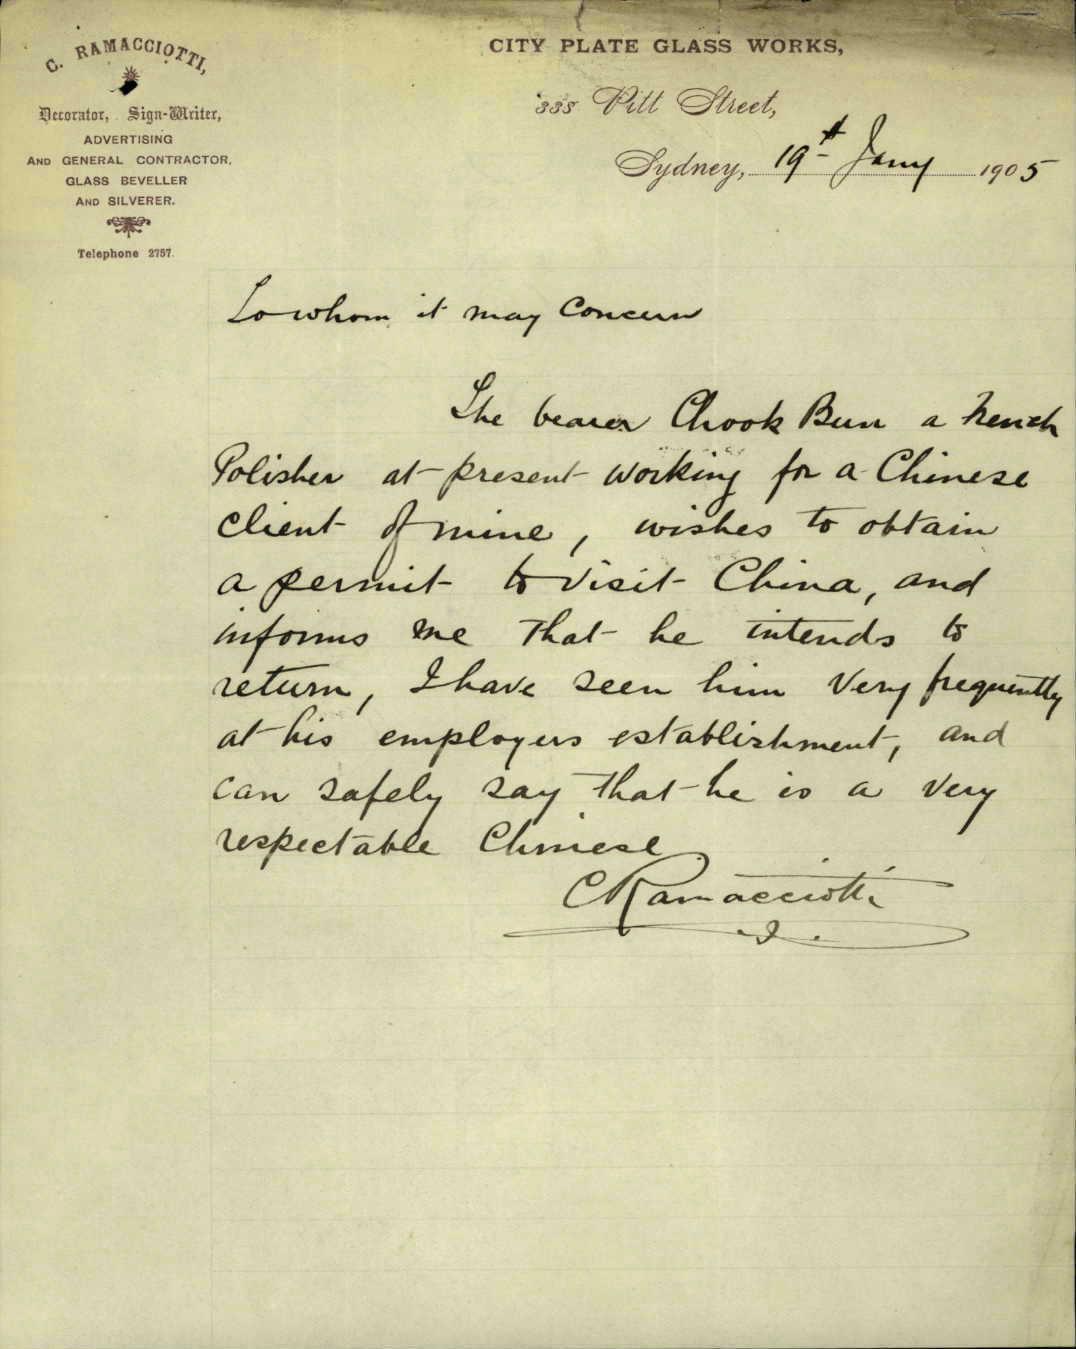 C. RAMACCIOTTI,
Decorator, Sign-Writer,
ADVERTISING
AND GENERAL CONTRACTOR,
GLASS BEVELLER
AND SILVERER.
Telephone 2757.
CITY PLATE GLASS WORKS,
338 Pitt Street,
Sydney, 19th Jany 1905
To whom it may Concern
The bearer Chook Bun a French
Polisher at present working for a Chinese
client of mine, wishes to obtain
a permit to visit China, and
informs me that he intends to
return, I have seen him very frequently
at his employers establishment, and
can safely say that he is a very
respectable Chinese
C Ramacciotti